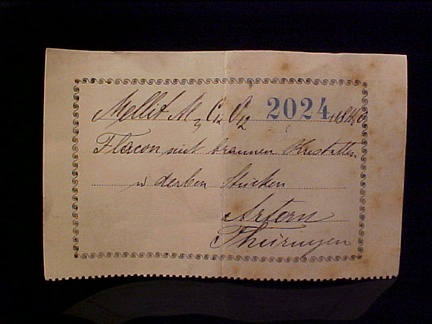 Mellit M₃ C₁₂ O₁₂ 2024
Flacon mit braunen Kristallen
u derben Stücken
Artern
Thüringen